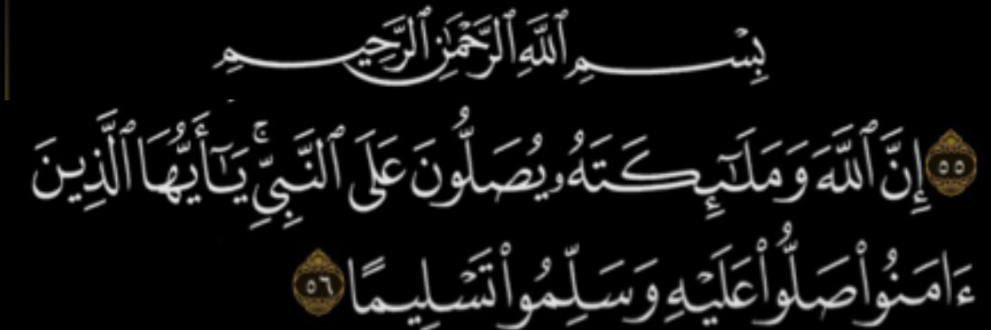 بِسْمِ ٱللَّهِ ٱلرَّحْمَٰنِ ٱلرَّحِيمِ
٥٥ إِنَّ ٱللَّهَ وَمَلَـٰٓئِكَتَهُۥ يُصَلُّونَ عَلَى ٱلنَّبِىِّ ۚ يَـٰٓأَيُّهَا ٱلَّذِينَ
ءَامَنُوا۟ صَلُّوا۟ عَلَيْهِ وَسَلِّمُوا۟ تَسْلِيمًا ٥٦